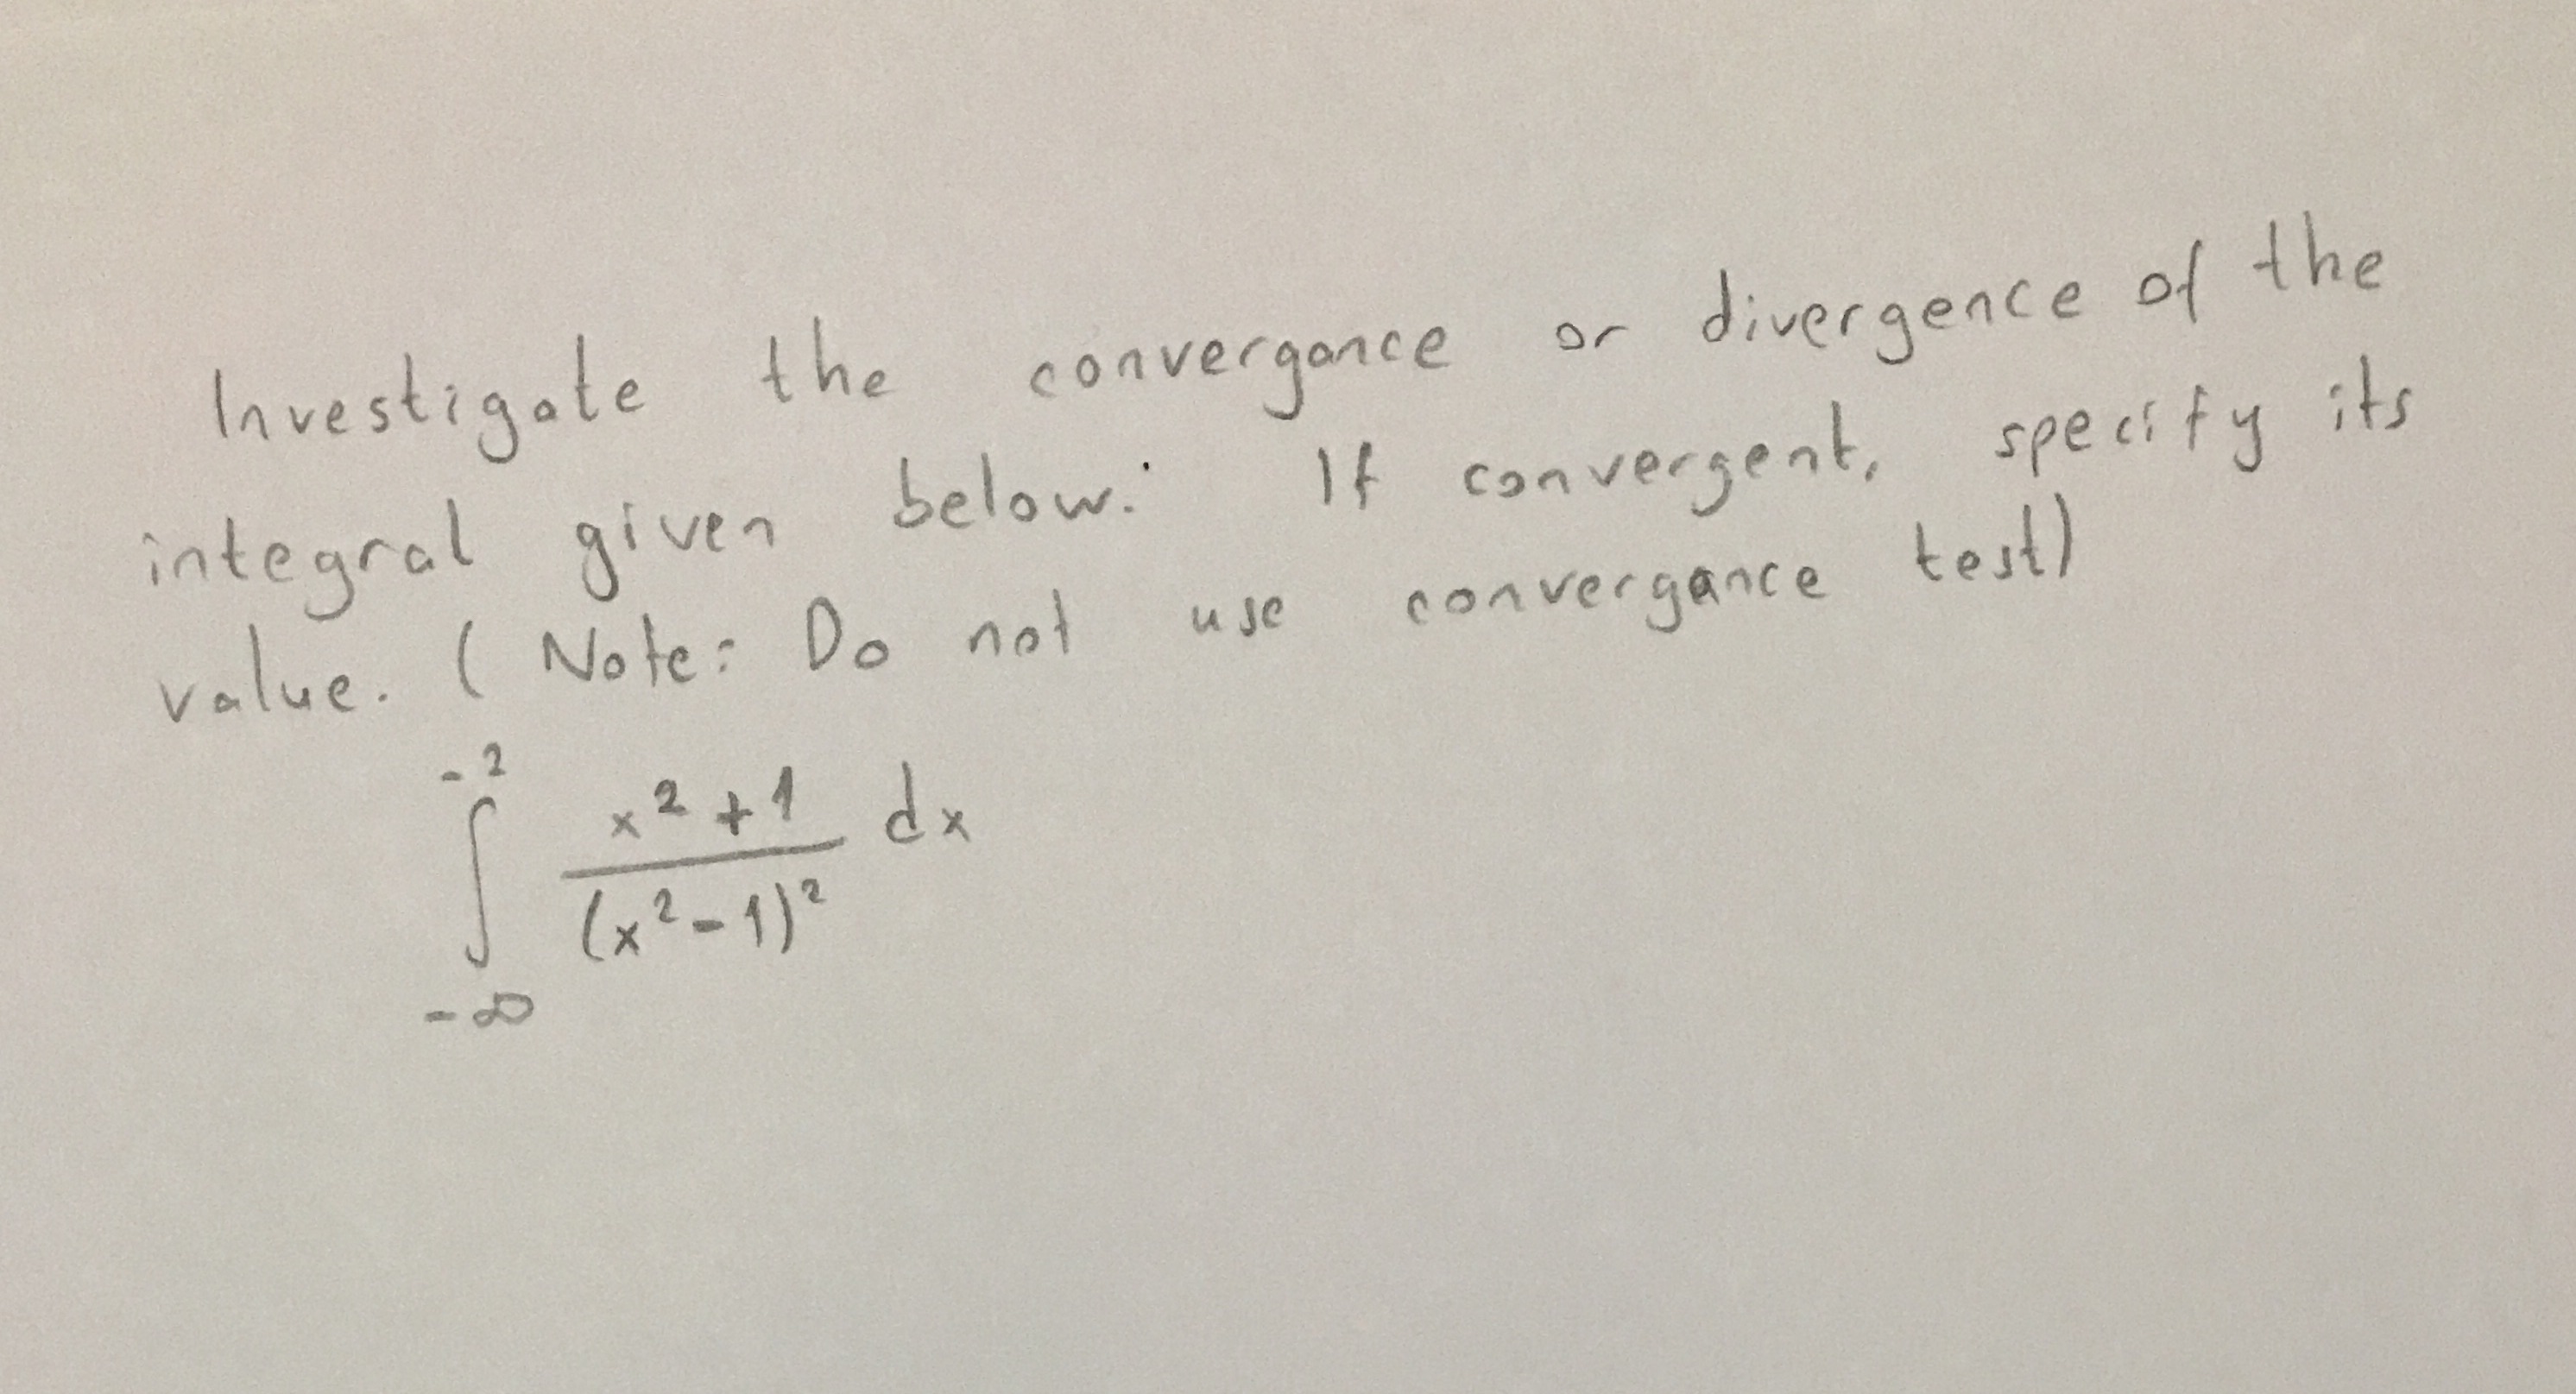 Investigate the convergance or divergence of the
integral given below. If convergent, specify its
value. ( Note: Do not use convergance test)
∫_{-∞}^{-2} \frac{x^2+1}{(x^2-1)^2} dx